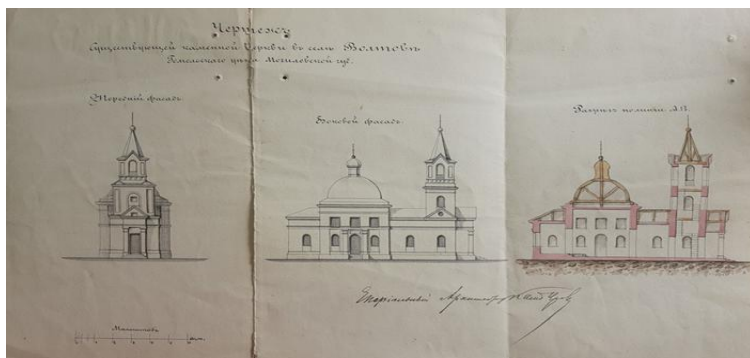 Чертежъ
существующей каменной Церкви въ селѣ Волтовѣ
Гомельскаго уѣзда Могилевской губ.
Передній фасадъ.
Боковой фасадъ.
Разрѣзъ по линіи А.В.
Епархіальный Архитекторъ
Масштабъ